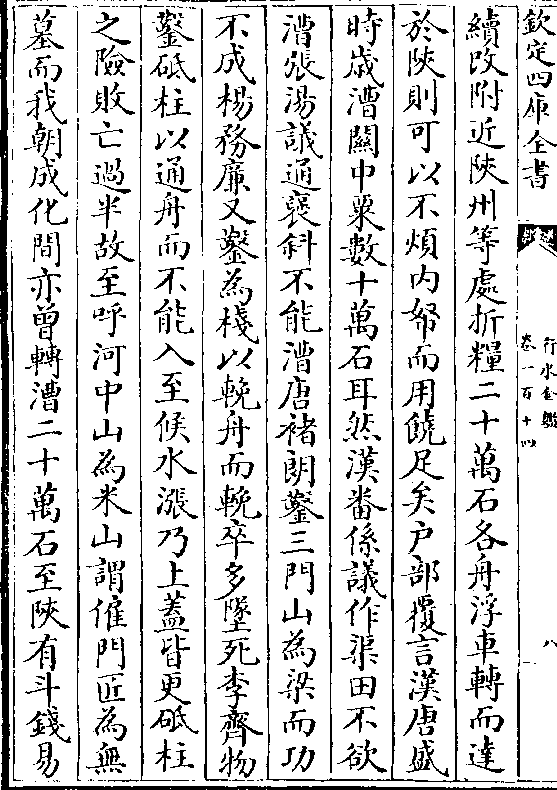 欽定四庫全書
行水金鑑
卷一百十四
八
續改附近陜州等處折糧二十萬石各舟浮車轉而達
於陜則可以不煩内帑而用饒足矣户部覆言漢唐盛
時歳漕關中粟數十萬石耳然漢番係議作渠田不欲
漕張湯議通襃斜不能漕唐褚朗鑿三門山為梁而功
不成楊務廉又鑿為棧以輓舟而輓卒多墜死李齊物
鑿砥柱以通舟而不能入至候水漲乃上蓋皆更砥柱
之險敗亡過半故至呼河中山為米山謂僱門匠為無
墓而我朝成化間亦曾轉漕二十萬石至陜有斗錢易